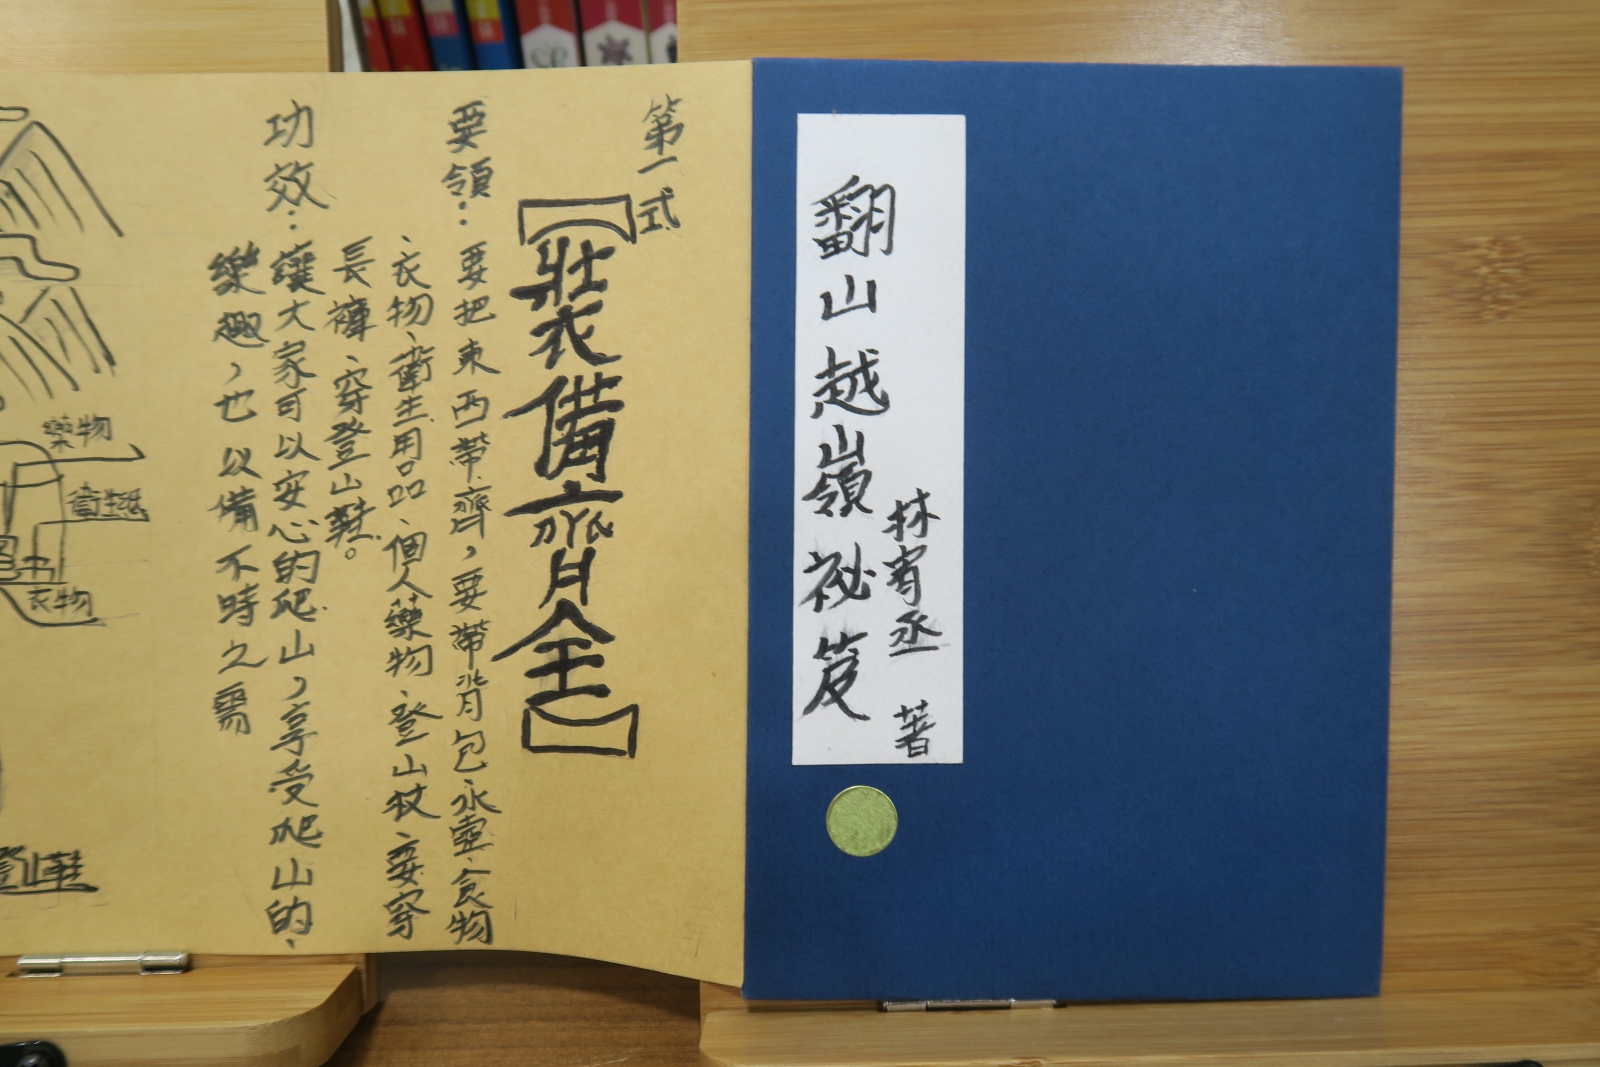 翻山越嶺祕笈
林宥丞 著
第一式
【裝備齊全】
要領：要把東西帶齊，要帶背包、水壺、食物
、衣物、衛生用品、個人藥物、登山杖、要穿
長褲、穿登山鞋。
功效：讓大家可以安心的爬山，享受爬山的、
樂趣，也以備不時之需
藥物
衛生紙
衣物
登山鞋